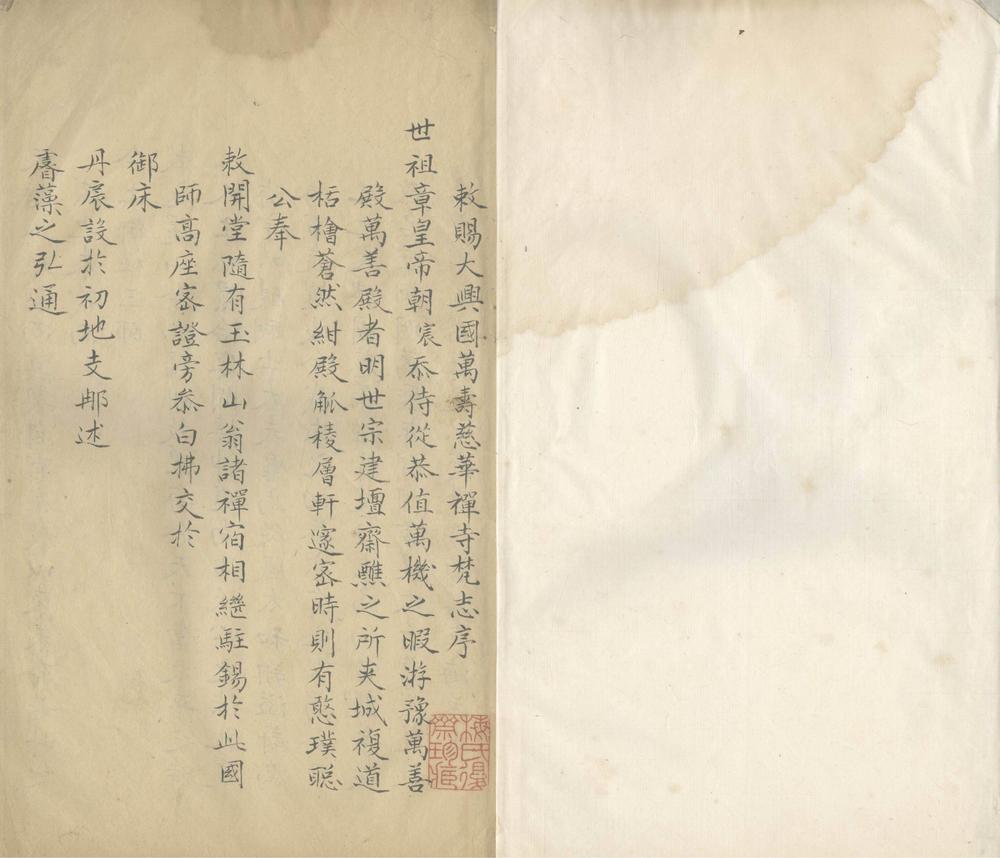 敕賜大興國萬壽慈華禪寺梵志序
世祖章皇帝朝宸忝侍從恭值萬機之暇游豫萬善
殿萬善殿者明世宗建壇齋醮之所夾城複道
栝檜蒼然紺殿觚稜層軒邃密時則有憨璞聰
公奉
敕開堂隨有玉林山翁諸禪宿相繼駐錫於此國
師高座密證旁叅白拂交於
御床
丹扆設於初地支那述
睿藻之弘通